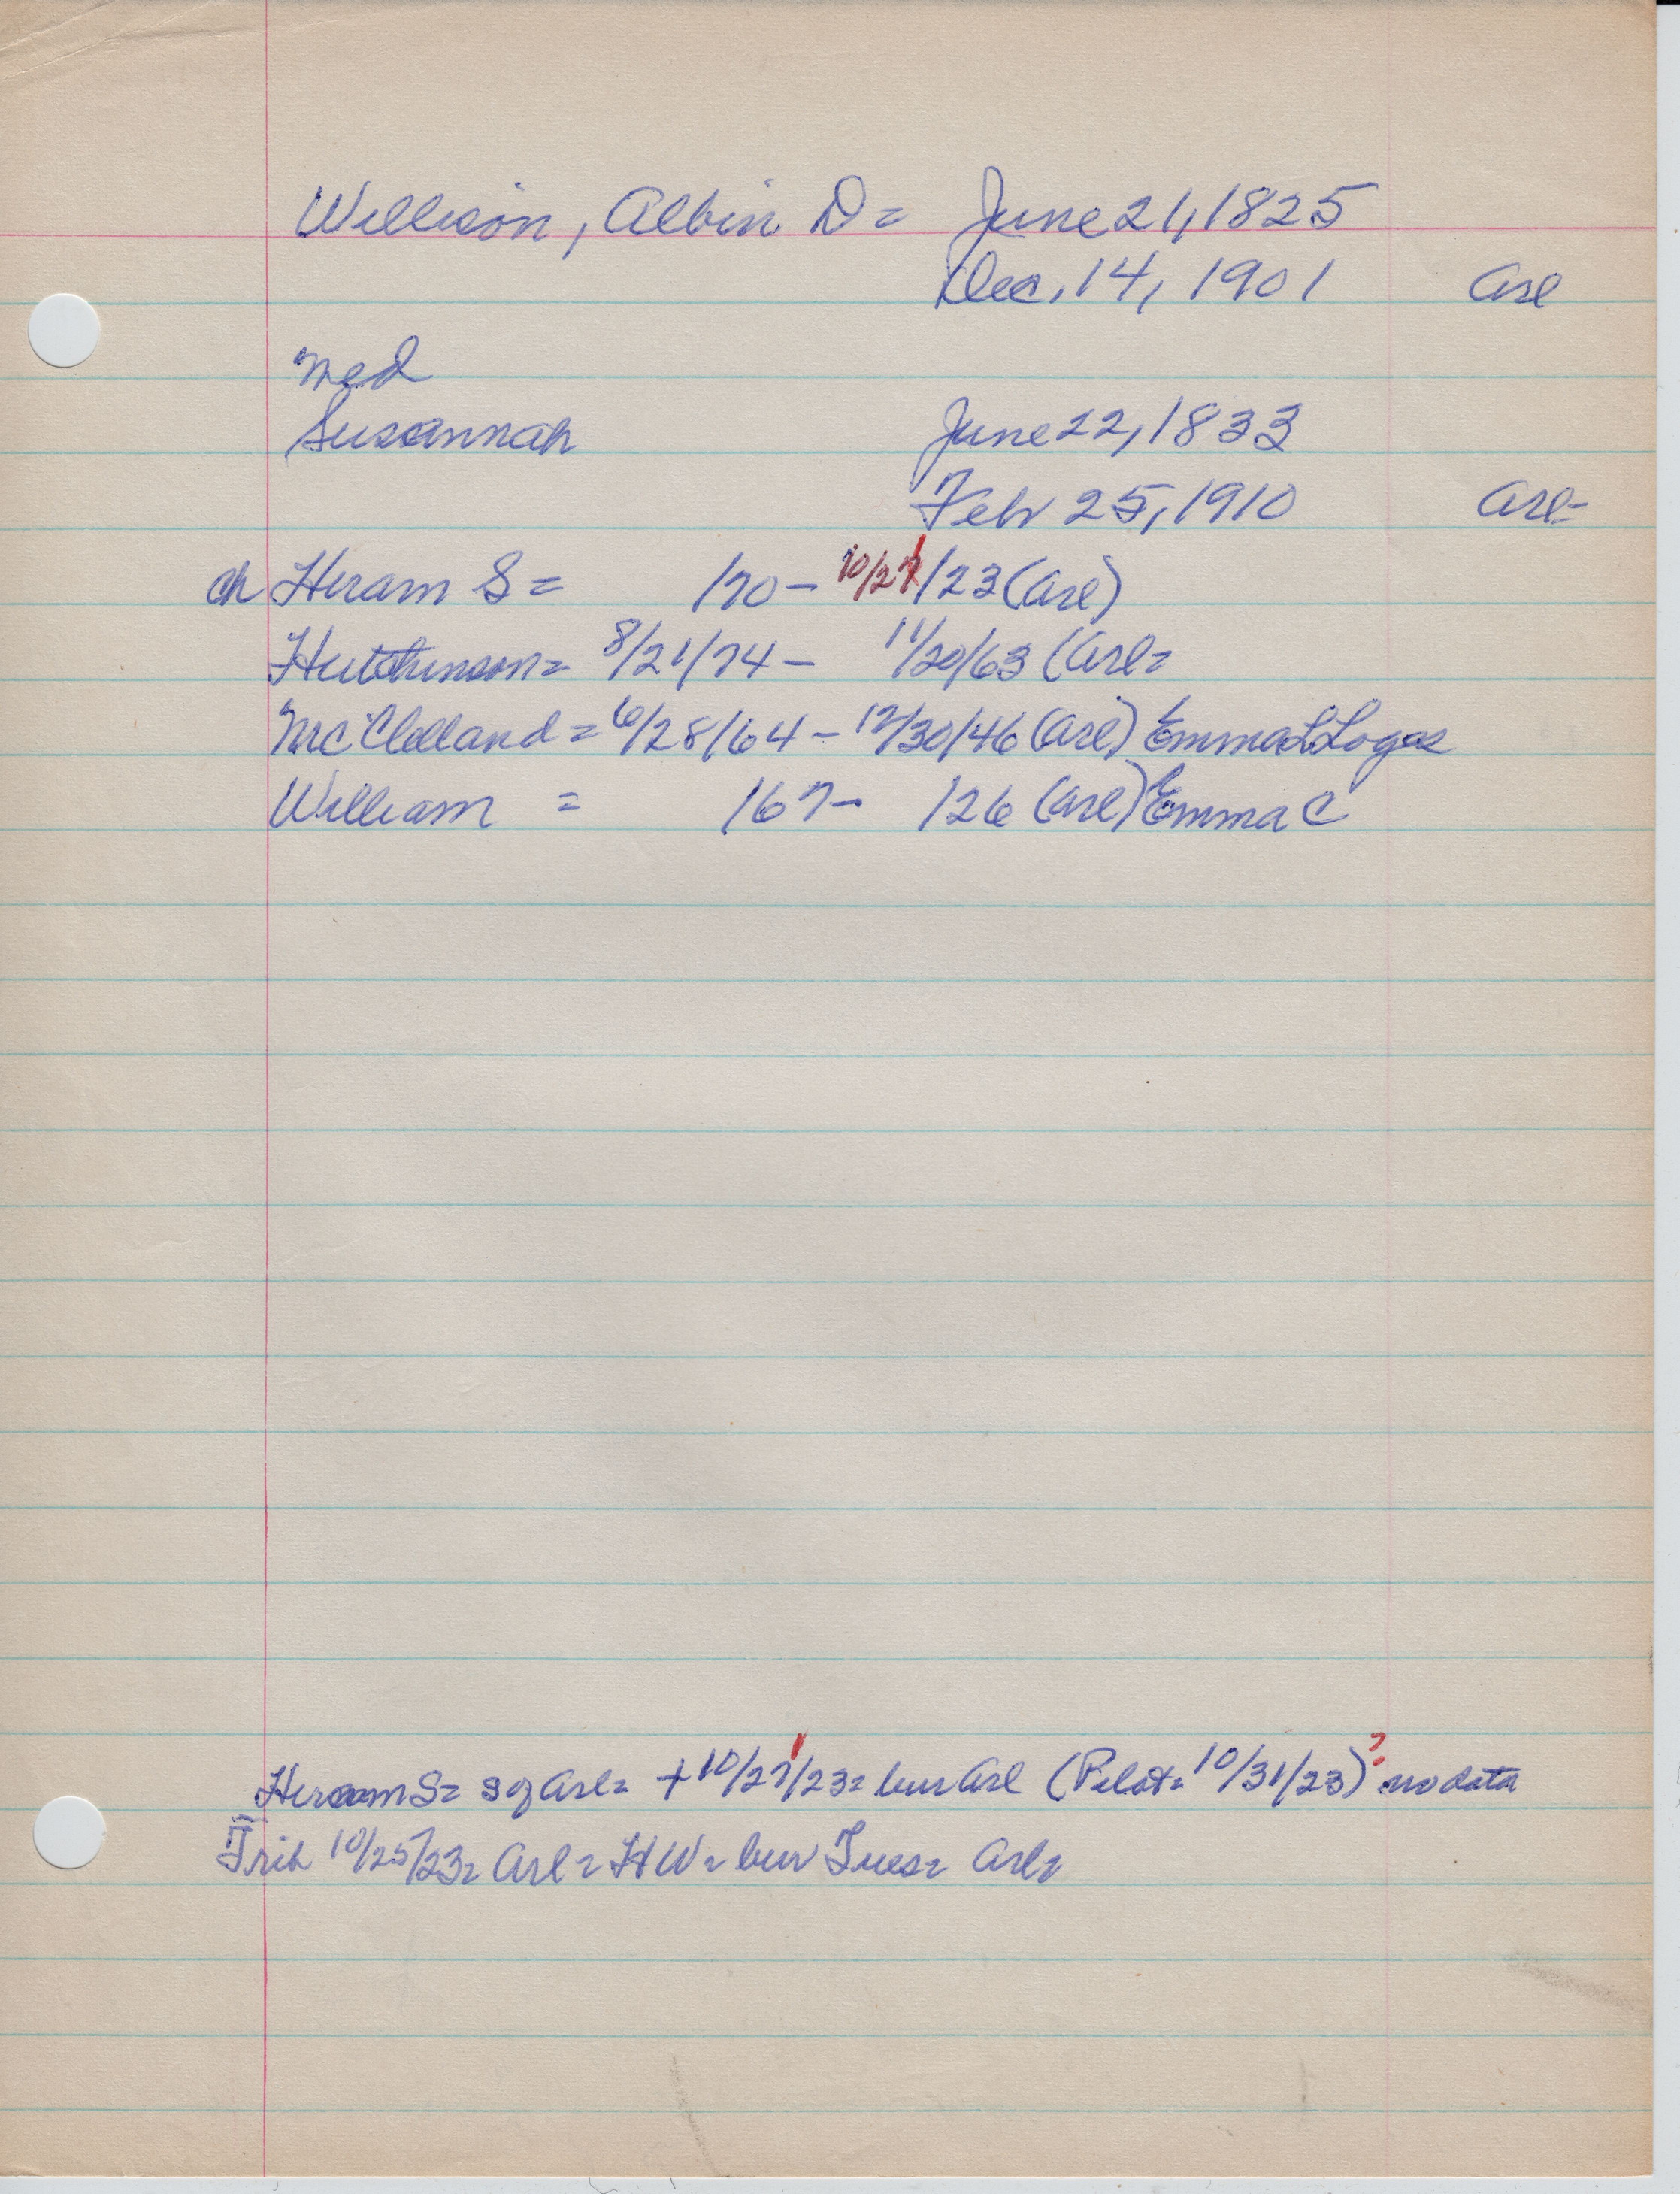 Willison, Albin D = June 21, 1825
Dec. 14, 1901 Arl
med
Susannah June 22, 1833
Feb 25, 1910 Arl-
ch Hiram S = /70 - 10/21/23 (Arl)
Hutchinson = 8/21/74 - 11/20/63 (Arl=
McClelland = 6/28/64 - 12/30/46 (Arl) Emma L Logue
William = /67 - /26 (Arl) Emma C
Hiram S= sq Arl= + 10/21/23= bur Arl (Pilot= 10/31/23)? no data
Trib 10/25/23= Arl= HW= bur Tues= Arl=